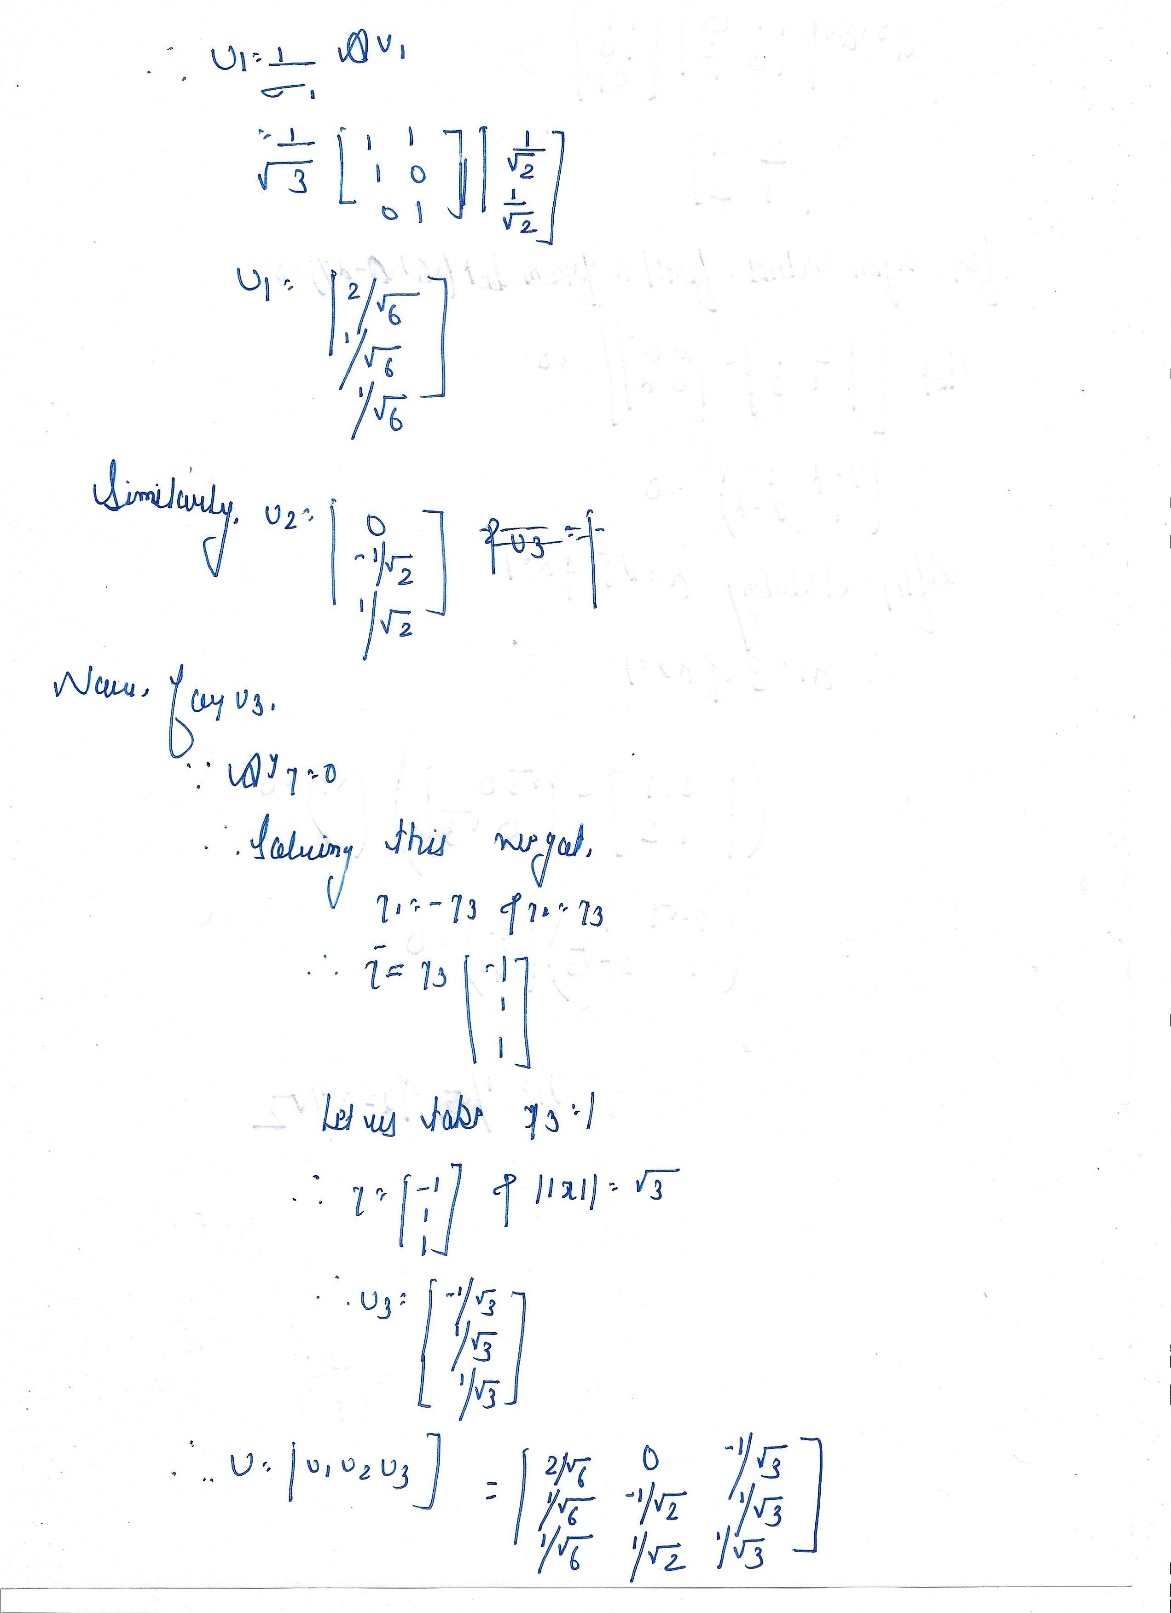 ∴ U1 = 1/σ1 A v1
= 1/√3 [1 1; 1 0; 0 1] [1/√2; 1/√2]
U1 = [2/√6; 1/√6; 1/√6]
Similarly, U2 = [0; -1/√2; 1/√2]
Now, for U3.
∵ Aᵀx = 0
∴ Solving this we get,
x1 = -x3 & x2 = x3
∴ x̄ = x3 [-1; 1; 1]
Let us take x3 = 1
∴ x = [-1; 1; 1] & ||x|| = √3
∴ U3 = [-1/√3; 1/√3; 1/√3]
∴ U = [U1 U2 U3] = [2/√6 0 -1/√3; 1/√6 -1/√2 1/√3; 1/√6 1/√2 1/√3]